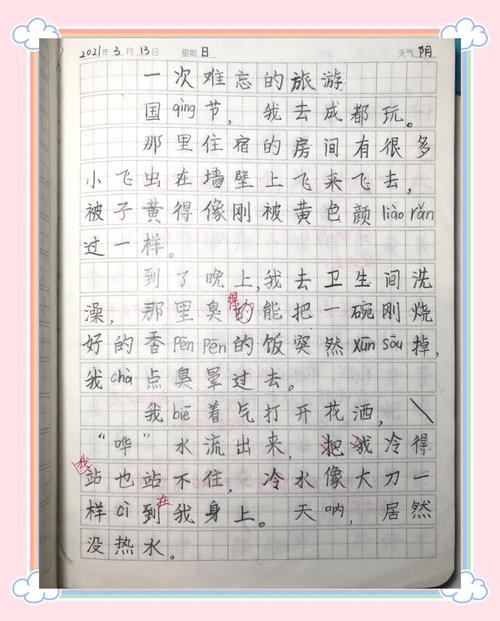 2021年3月13日 星期日 天气阴
一次难忘的旅游
国qìng节，我去成都玩。
那里住宿的房间有很多
小飞虫在墙壁上飞来飞去，
被子黄得像刚被黄色颜liào rǎn
过一样。
到了晚上，我去卫生间洗
得
澡，那里臭的能把一碗刚烧
好的香Pēn Pēn的饭突然xūn sōu掉，
我chà点臭晕过去。
我biē着气打开花洒，
“哗”水流出来，把我冷得
我
站也站不住，冷水像大刀一
在
样cì到我身上。天呐，居然
没热水。